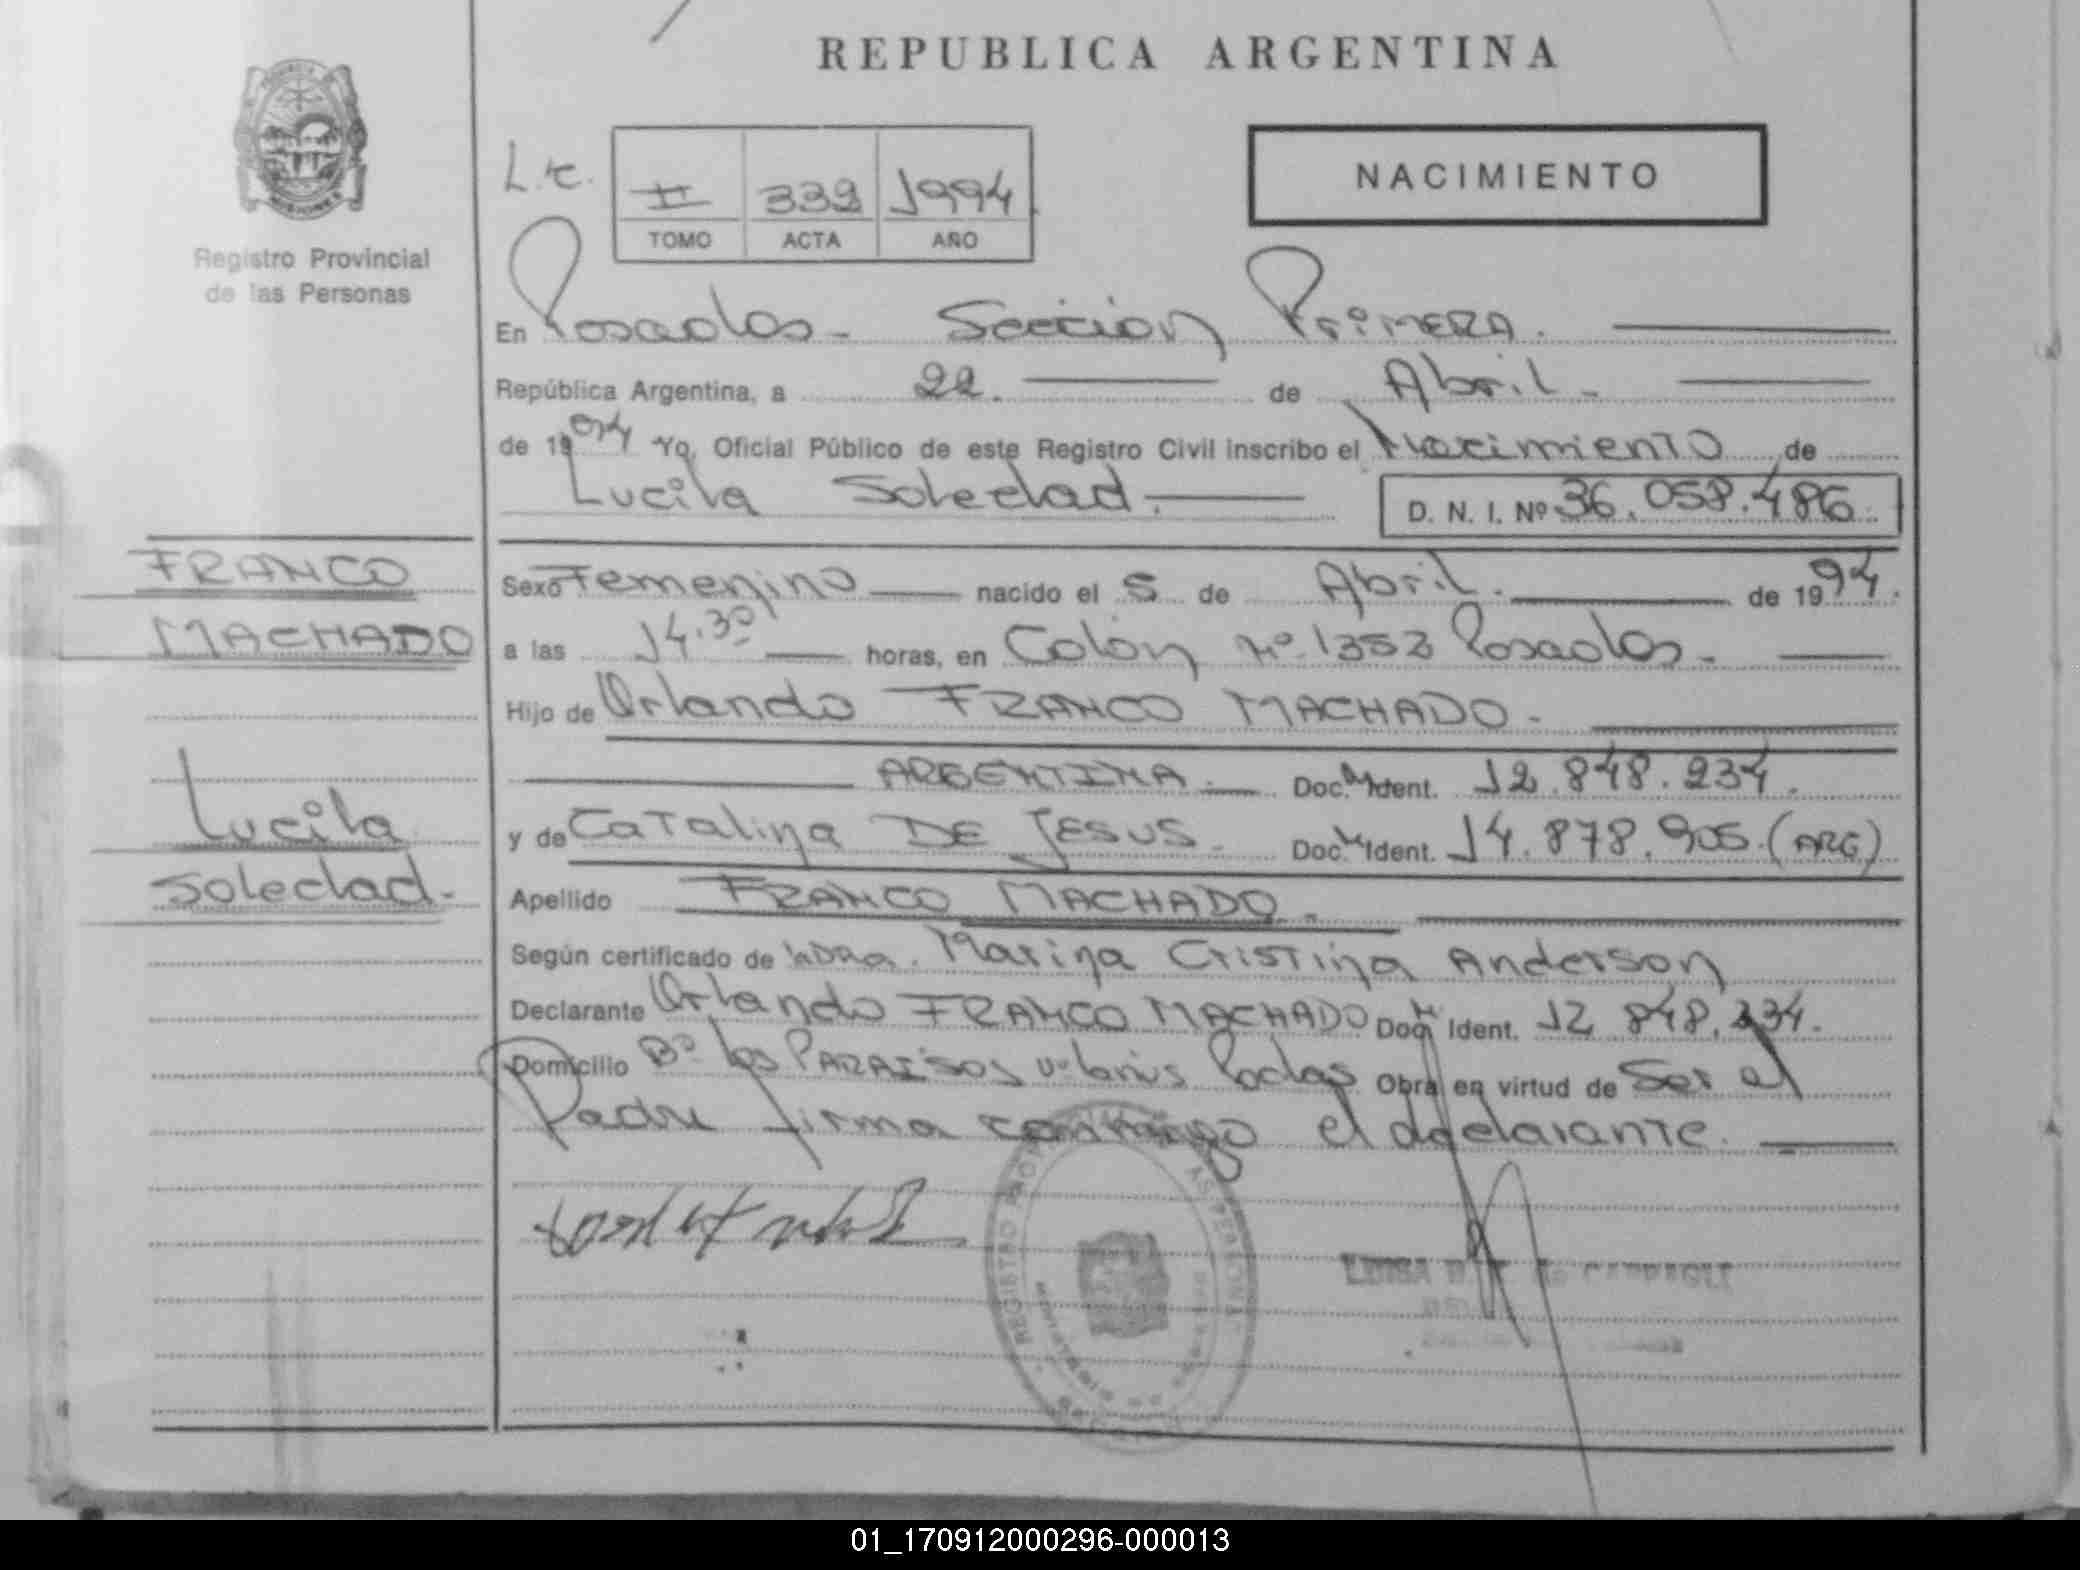 REPUBLICA ARGENTINA
Registro Provincial
de las Personas
II 339 1994
TOMO ACTA AÑO
NACIMIENTO
En Posadas - Sección Primera.
República Argentina, a 22. de Abril.
de 1994 Yo, Oficial Público de este Registro Civil inscribo el Nacimiento de
Lucila Soledad. D. N. I. Nº 36.058.486.
FRANCO
MACHADO
Lucila
Soledad.-
Sexo Femenino nacido el 5 de Abril. de 1994.
a las 14.30 horas, en Colón Nº 1353 Posadas.-
Hijo de Orlando FRANCO MACHADO.-
ARGENTINA. Doc. Ident. 12.848.234.
y de Catalina DE JESUS. Doc. Ident. 14.878.905.(ARG)
Apellido FRANCO MACHADO.
Según certificado de la DRa. Marina Cristina Anderson
Declarante Orlando FRANCO MACHADO Doc. Ident. 12 848.234.
Domicilio Bº los PARAISOS Obra en virtud de Ser el
Padre firma conmigo el declarante.
REGISTRO
LUISA
01_170912000296-000013